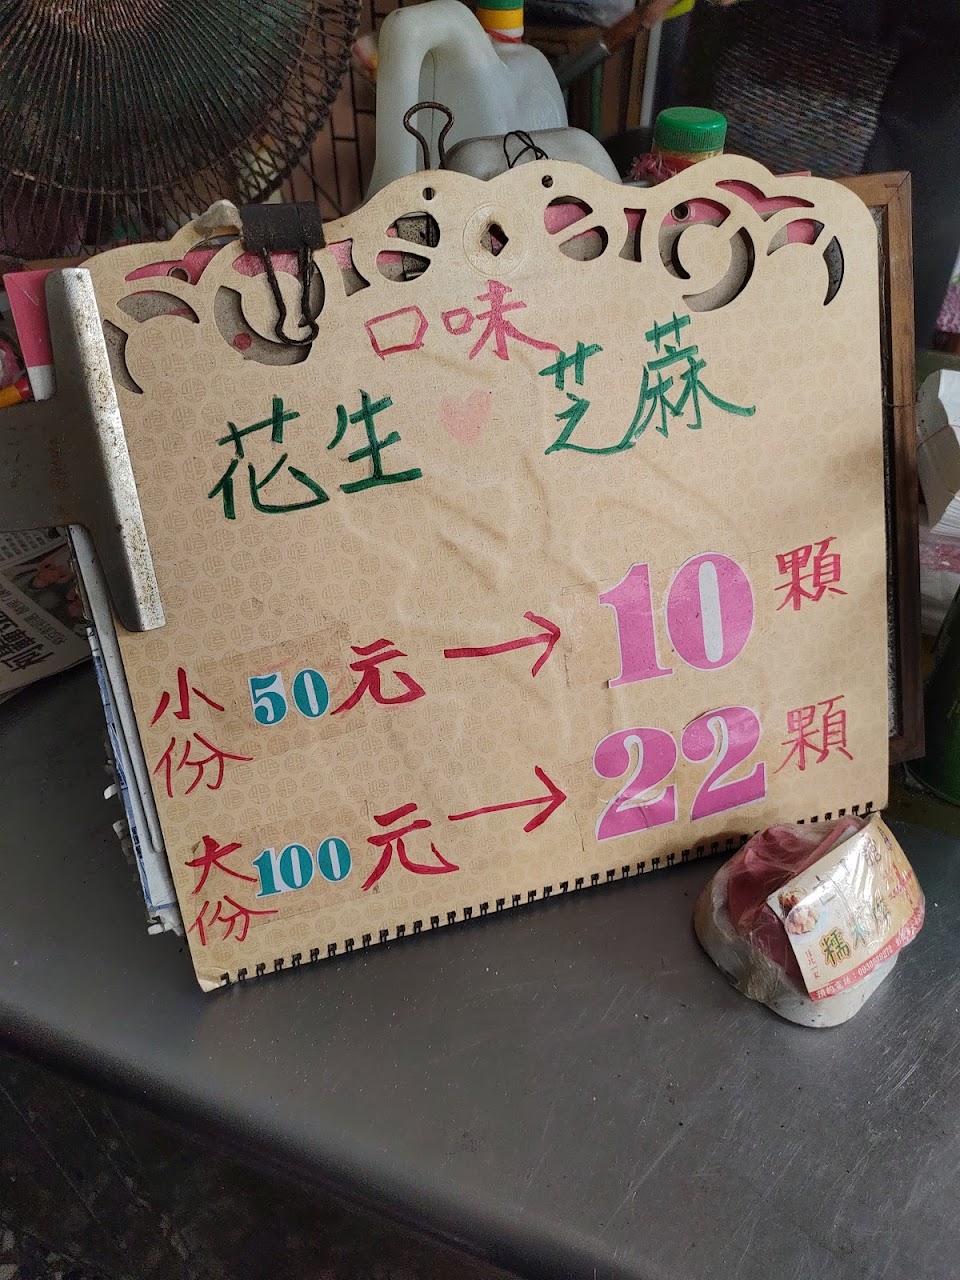 口味
花生 芝麻
小份 50元 → 10顆
大份 100元 → 22顆
糯